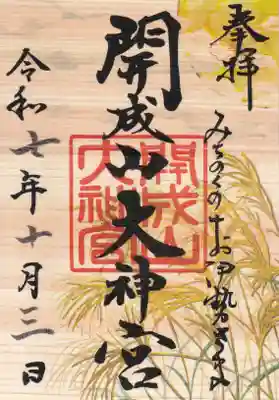 奉拝
みちのくのお伊勢さま
開成山大神宮
開成山
大神宮
令和七年十月三日